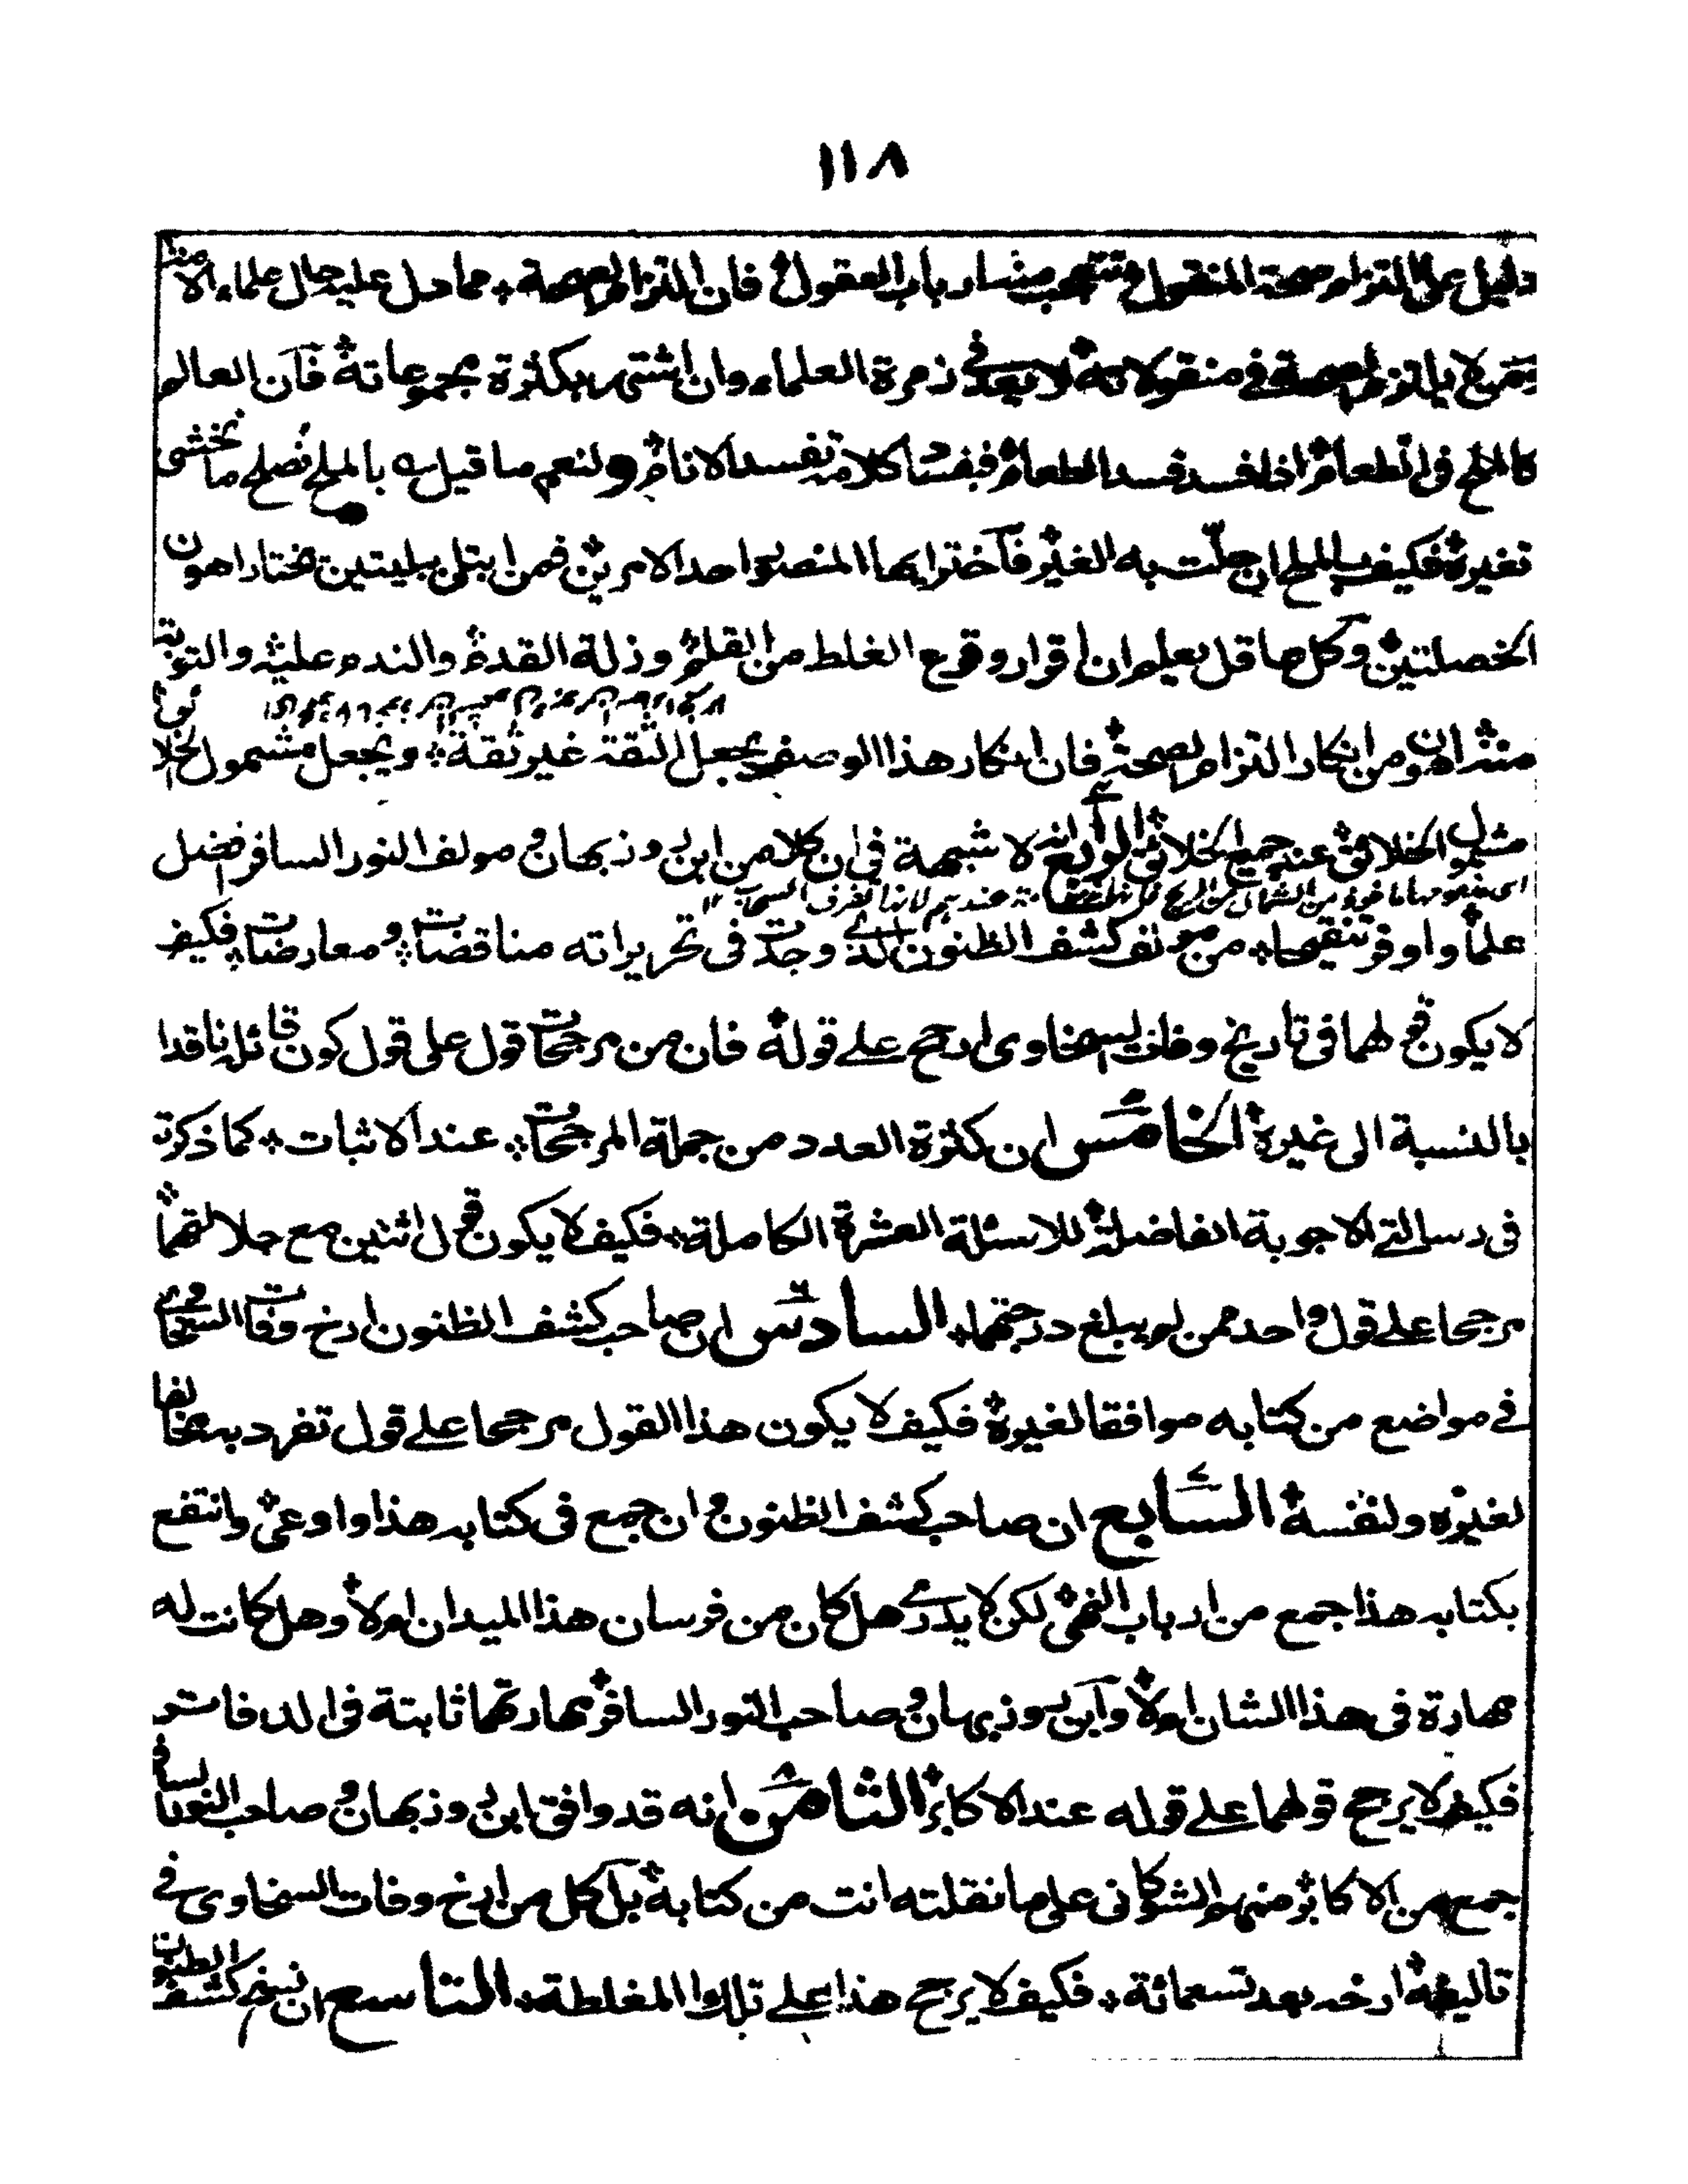 ١١٨
دليل على التزام صحة المنقول تتعجب منه ارباب العقول فان التزام الصحة مما دل عليه حال علماء الامة
ومن لا يلتزم الصحة في منقولاته لا يعد في زمرة العلماء وان اشتهر بكثرة مجموعاته فان العالم
كالملح في الطعام اذا فسد فسد الطعام فبفساد كلامه تفسد الانام ولنعم ما قيل بالملح نصلح ما نخشى
تغيره فكيف بالملح ان حلّت به الغير فاختر ايها المنصور احد الامرين فمن ابتلى ببليتين يختار اهون
الخصلتين وكل عاقل يعلم ان اقرار وقوع الغلط من القلم وزلة القدم والندم عليه والتوبة
منه اهون من انكار التزام الصحة فان انكار هذا الوصف يجعل الثقة غير ثقة ويجعل مشمول الخلائق
مشمو الخلائق عند جميع الخلائق الرابع انه لا شبهة في ان كلا من ابن روزبهان ومولف النور السافر افضل
علما واوفر تنقيحا من مولف كشف الظنون الذي وجدت في تحريراته مناقضات ومعارضات فكيف
لا يكون قولهما في تاريخ وفات السخاوى ارجح على قوله فان من مرجحات قول على قول كون قائله ناقدا
بالنسبة الى غيره الخامس ان كثرة العدد من جملة المرجحات عند الاثبات كما ذكرته
في رسالتي الاجوبة الفاضلة للاسئلة العشرة الكاملة فكيف لا يكون قول اثنين مع جلالتهما
مرجحا على قول واحد ممن لم يبلغ درجتهما السادس ان صاحب كشف الظنون ارخ وفات السخاوى
في مواضع من كتابه موافقا لغيره فكيف لا يكون هذا القول مرجحا على قول تفرد به مخالفا
لغيره ولنفسه السابع ان صاحب كشف الظنون وان جمع في كتابه هذا واوعى وانتفع
بكتابه هذا جمع من ارباب النهى لكن لا يدرى هل كان من فرسان هذا الميدان ام لا وهل كانت له
مهارة في هذا الشان ام لا وابن روزبهان وصاحب النور السافر مهارتهما ثابتة في الدفاتر
فكيف لا يرجح قولهما على قوله عند الاكابر الثامن انه قد وافق ابن روزبهان وصاحب النور السافر
جمع من الاكابر منهم الشوكانى على ما نقلته انت من كتابه بل كل من ارخ وفات السخاوى في
تاليفه ارخه بعد تسعمائة فكيف لا يرجح هذا على تلك المغلطة التاسع ان نسخ كشف الظنون